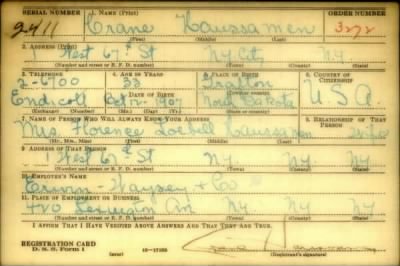 SERIAL NUMBER 1. NAME (Print) ORDER NUMBER
2411 Crane Haussamen 3272
(First) (Middle) (Last)
2. ADDRESS (Print)
1 West 67th St NY City NY
(Number and street or R. F. D. number) (Town) (County) (State)
3. TELEPHONE 4. AGE IN YEARS 5. PLACE OF BIRTH 6. COUNTRY OF CITIZENSHIP
2-6700 33
Endicott DATE OF BIRTH
Oct 1907 North Dakota U.S.A.
(Exchange) (No.) (Mo.) (Day) (Yr.) (State or country)
7. NAME OF PERSON WHO WILL ALWAYS KNOW YOUR ADDRESS 8. RELATIONSHIP OF THAT PERSON
Mrs. Florence Haussamen wife
(Mr., Mrs., Miss) (First) (Middle) (Last)
9. ADDRESS OF THAT PERSON
1 West 67th St NY. NY. NY
(Number and street or R. F. D. number) (Town) (County) (State)
10. EMPLOYER'S NAME
Erwin-Wasey & Co
11. PLACE OF EMPLOYMENT OR BUSINESS
420 Lexington Av NY. NY. NY
(Number and street or R. F. D. number) (Town) (County) (State)
I AFFIRM THAT I HAVE VERIFIED ABOVE ANSWERS AND THAT THEY ARE TRUE.
REGISTRATION CARD
D. S. S. Form 1
(over) 16—17105